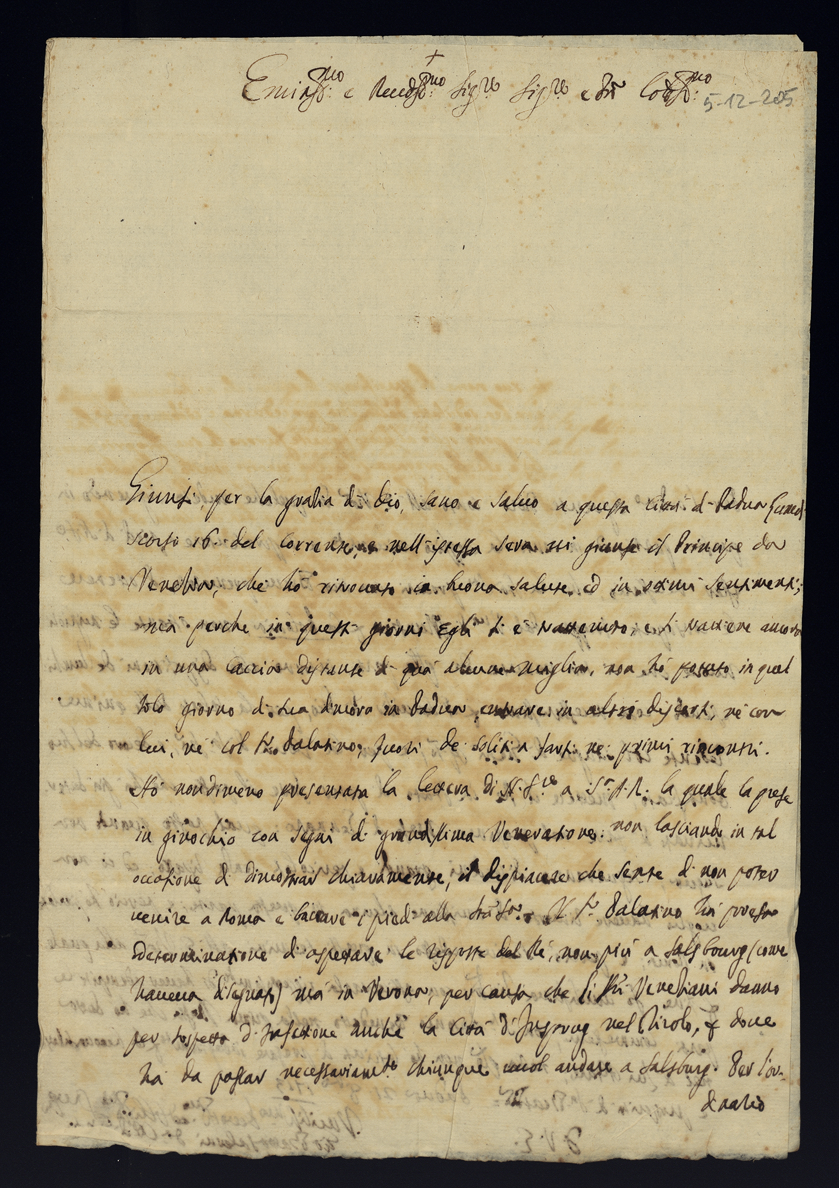 +
Emin.mo e Reued.mo Sig.re Sig.re e Prõn Col.mo
5-12-205
Giunsi, per la gratia di Dio, sano e saluo a questa Città di Padua Lunedì
scorso 16 del corrente, e nell'istessa sera ui giunse il Principe da
Venetia, che hò ritrouato in buona salute, ed in ottimi sentimenti;
mà perche in questi giorni Egli si è trattenuto, e si trattiene ancora
in una Caccia distante di quà alcune miglia, non hò potuto in quel
solo giorno di sua dimora in Padua entrare in altri discorsi, nè con
lui, nè col Sr. Palatino, fuori de soliti a farsi ne primi rincontri.
Hò nondimeno presentata la lettera di N. S.re a S. A. R. la quale la prese
in ginochio con segni di grandissima Veneratione, non lasciando in tal
occasione di dimostrar chiaramente, il dispiacere che sente di non poter
uenire a Roma e baciare i piedi alla Stà Sua. Il Sr. Palatino hà preso
determinatione di aspettare le risposte del Rè, non più a Salsbourg (come
haueua disegnato) mà in Verona, per causa che li SSri Venetiani danno
per sospetta d'Infettione anche la Città d'Insprug nel Tirolo, doue
hà da passar necessariam.te chiunque uuol andare a Salsburg. Per l'or-
dinario